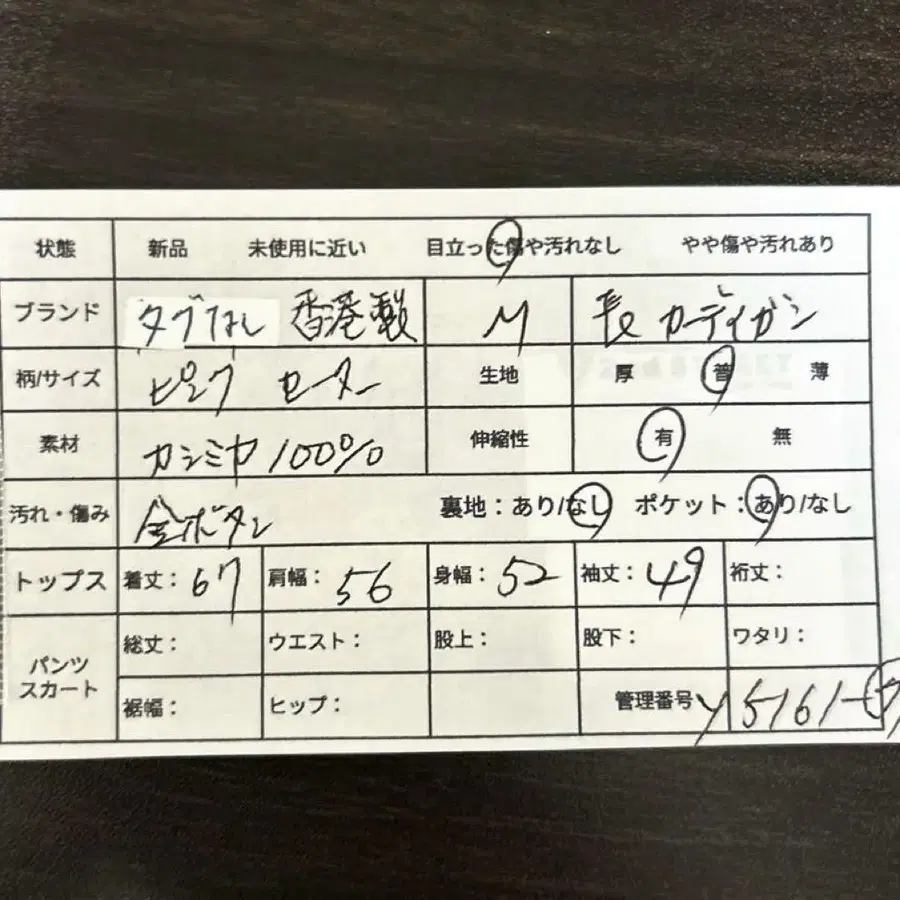 状態 新品 未使用に近い 目立った傷や汚れなし やや傷や汚れあり
ブランド タグなし 香港製 M 長 カーディガン
柄/サイズ ピンク セーター 生地 厚 普 薄
素材 カシミヤ100% 伸縮性 有 無
汚れ・傷み 金ボタン 裏地：あり/なし ポケット：あり/なし
トップス 着丈：67 肩幅：56 身幅：52 袖丈：49 裄丈：
パンツ スカート 総丈： ウエスト： 股上： 股下： ワタリ：
裾幅： ヒップ： 管理番号 y5161-